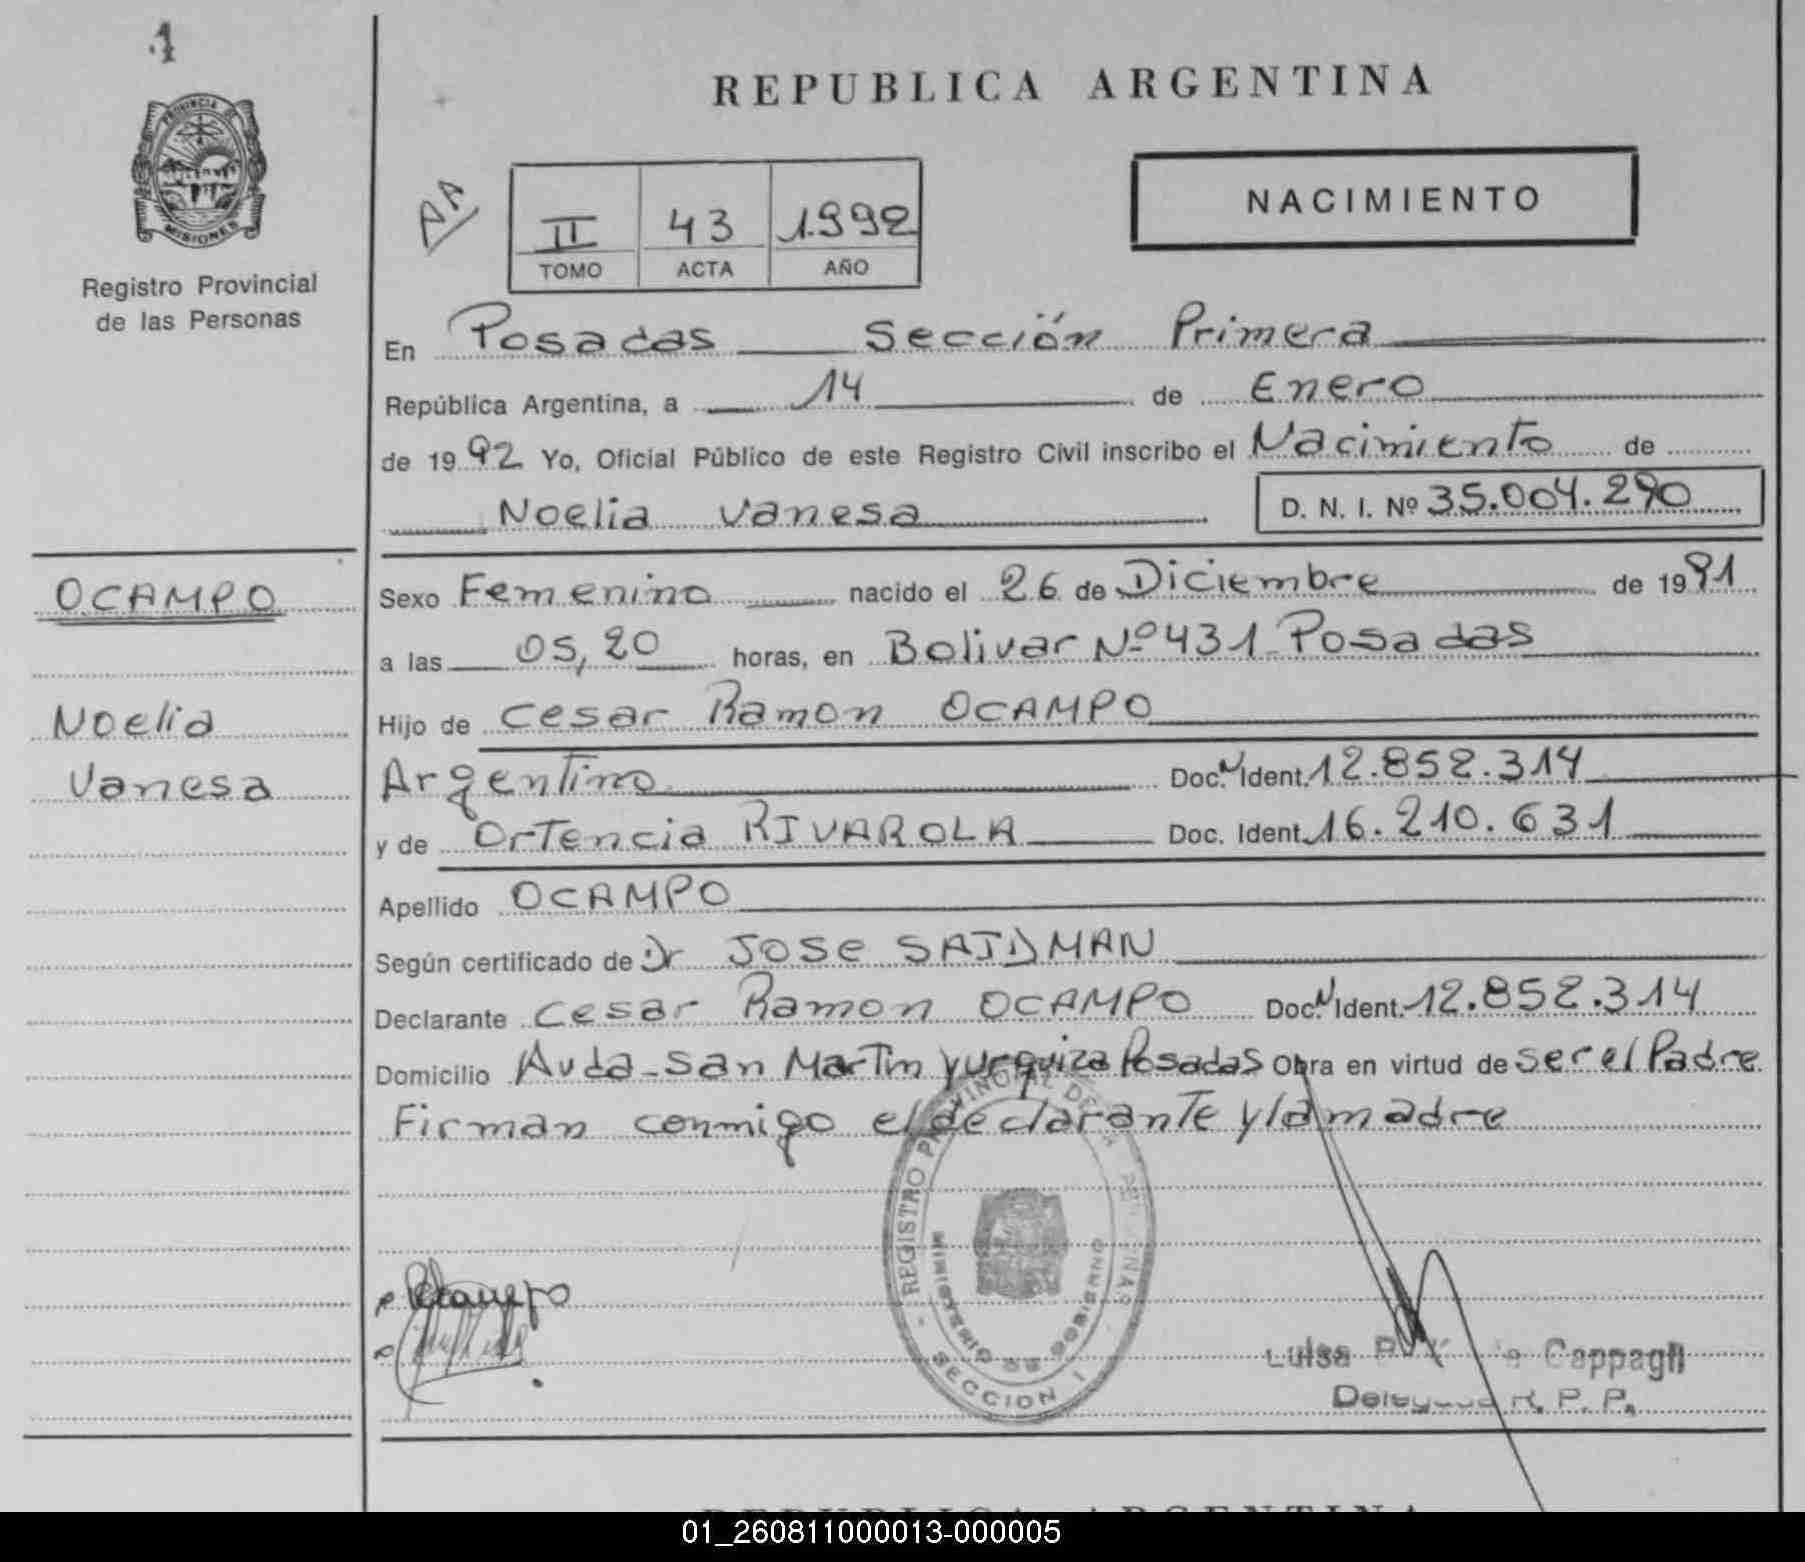 1
PROVINCIA DE
MISIONES
Registro Provincial
de las Personas
REPUBLICA ARGENTINA
AA
II 43 1.992
TOMO ACTA AÑO
NACIMIENTO
En Posadas Sección Primera
República Argentina, a 14 de Enero
de 19 92 Yo, Oficial Público de este Registro Civil inscribo el Nacimiento de
Noelia Vanesa D. N. I. Nº 35.004.290
OCAMPO
Noelia
Vanesa
Sexo Femenino nacido el 26 de Diciembre de 19 91
a las 05,20 horas, en Bolivar Nº 431 Posadas
Hijo de Cesar Ramon OCAMPO
Argentino Doc. N Ident. 12.852.314
y de Ortencia RIVAROLA Doc. Ident. 16.210.631
Apellido OCAMPO
Según certificado de Dr JOSe SAIDMAN
Declarante Cesar Ramon OCAMPO Doc. N Ident. 12.852.314
Domicilio Avda-San Martin y urquiza Posadas Obra en virtud de ser el Padre
Firman conmigo el declarante y la madre
REGISTRO PROVINCIAL DE
MINISTERIO DE GOBIERNO
SECCION I
Luisa Cappagli
R. P. P.
REPUBLICA ARGENTINA
01_260811000013-000005